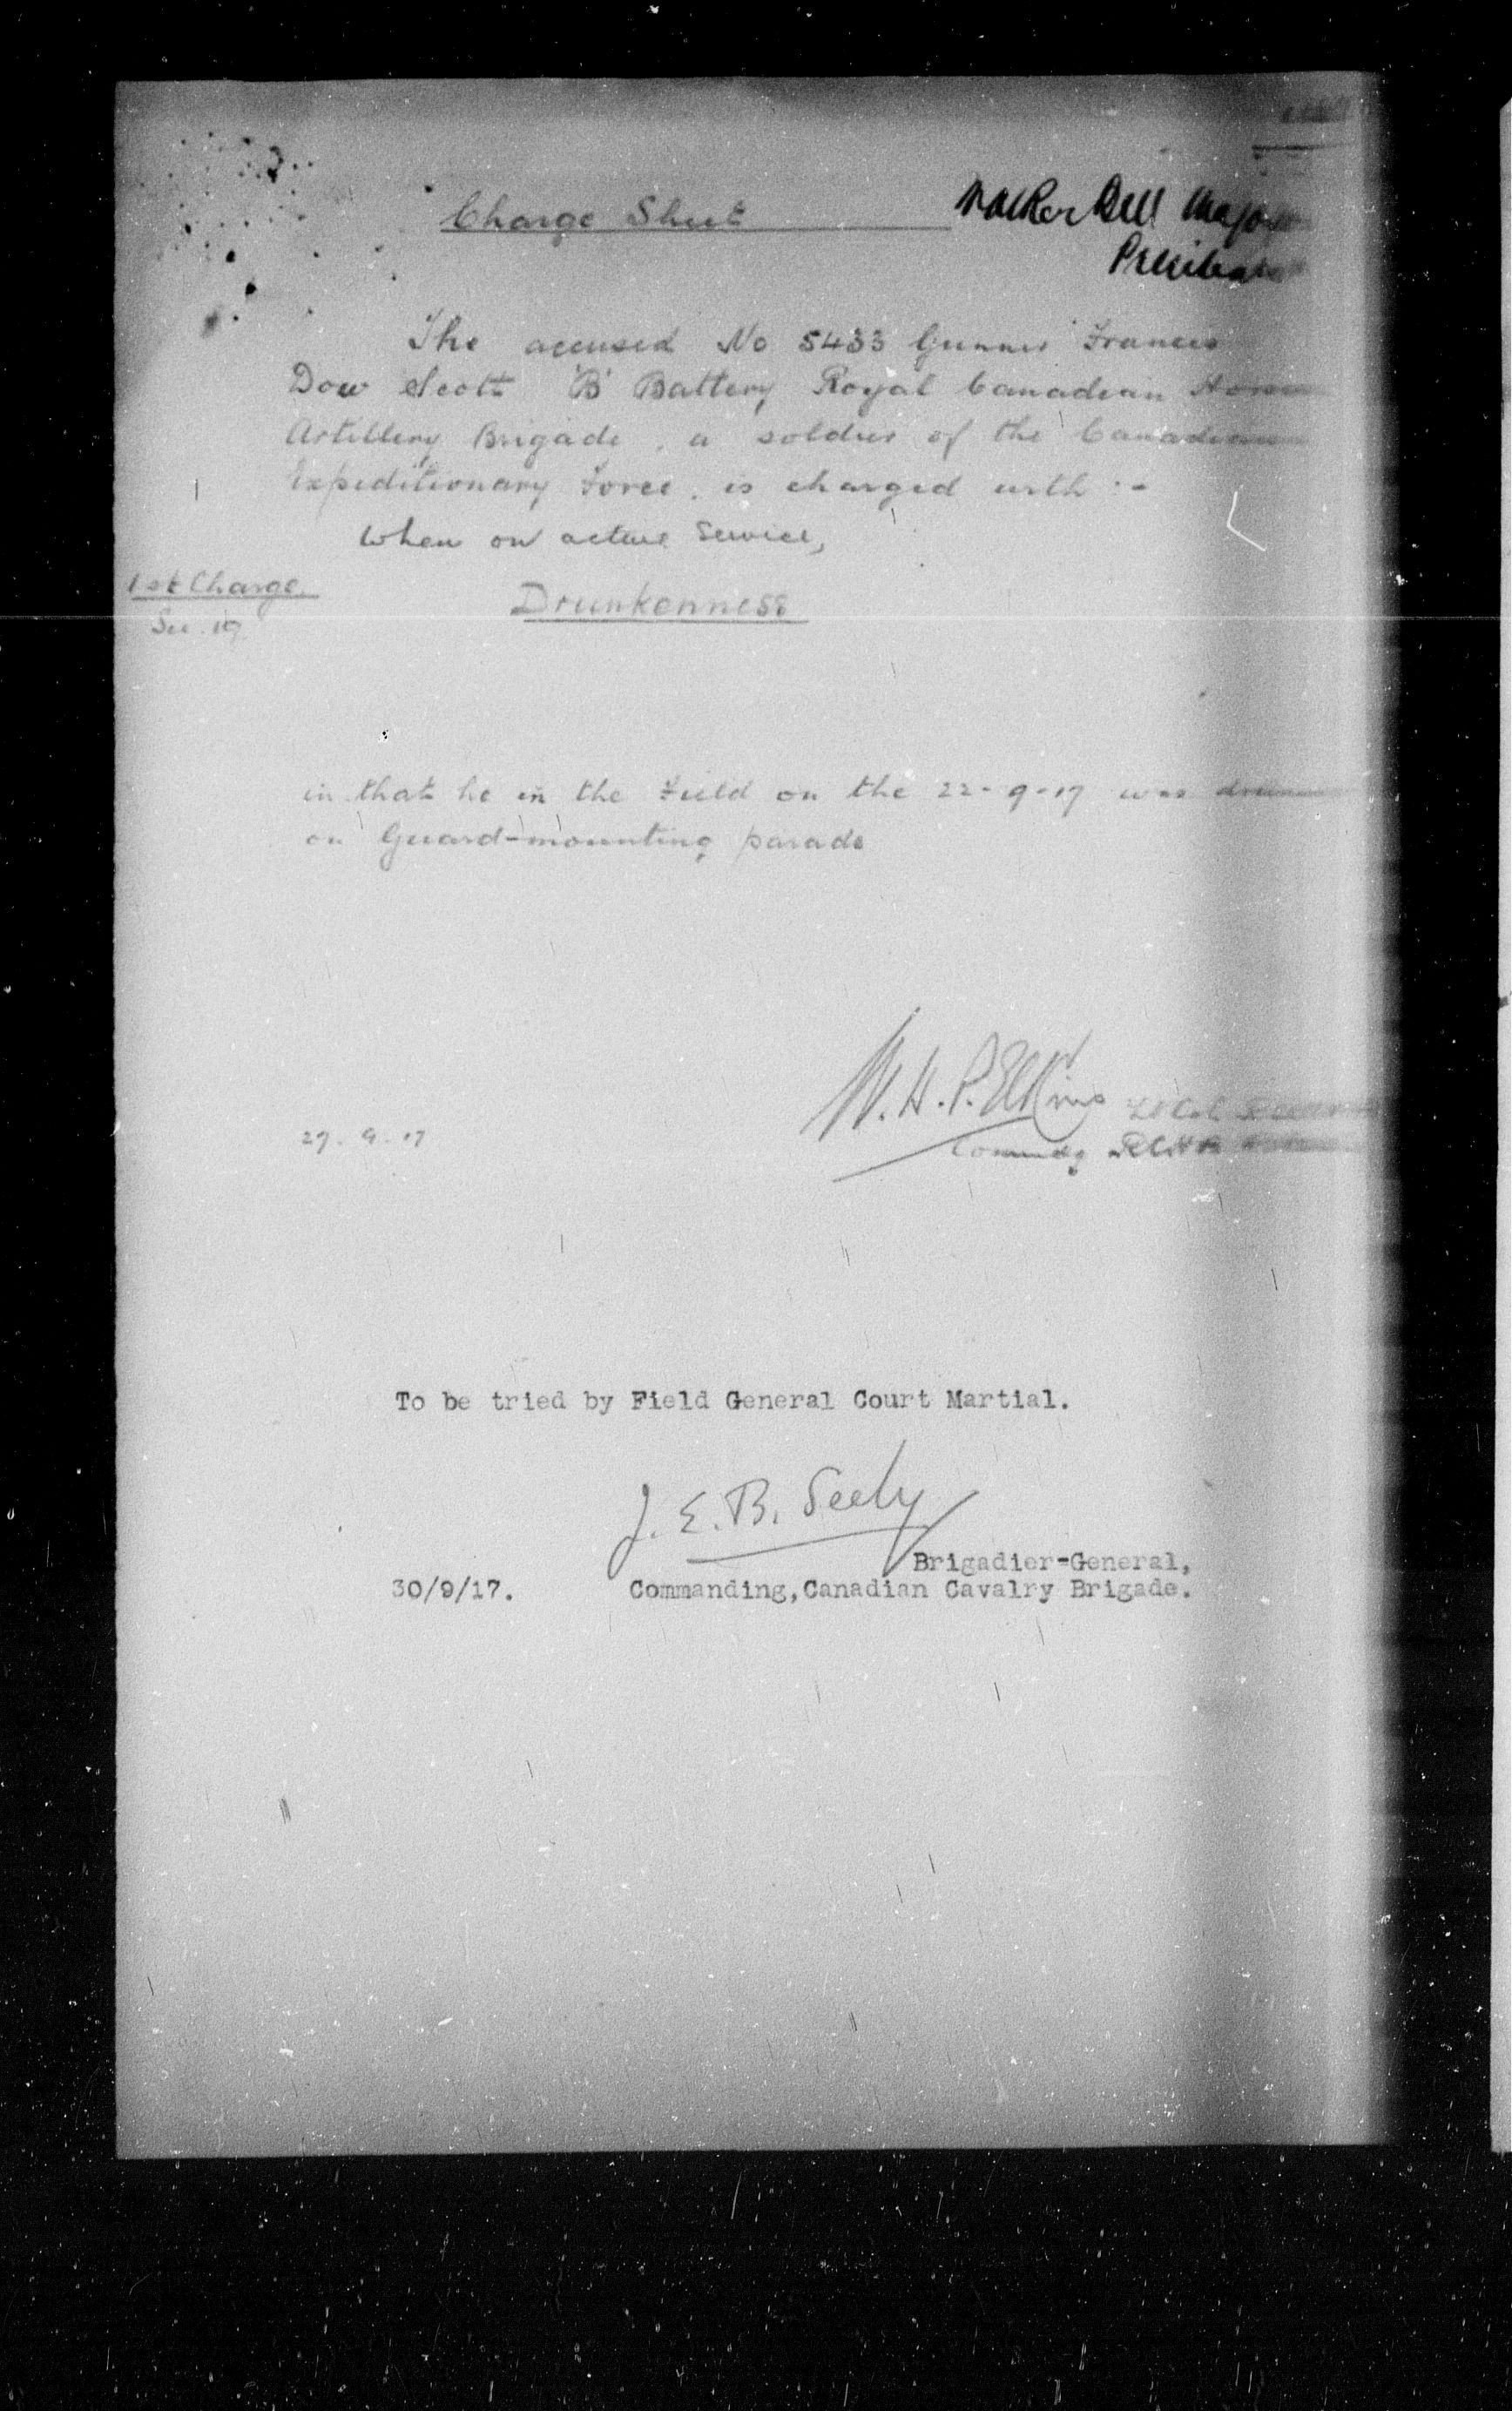 Charge Sheet
Walker Bell Major
President
The accused No 5433 Gunner Francis
Dow Scott 'B' Battery Royal Canadian Horse
Artillery Brigade, a soldier of the Canadian
Expeditionary Force, is charged with :-
When on active Service,
1st Charge
Sec. 19
Drunkenness
in that he in the Field on the 22-9-17 was drunk
on Guard-mounting parade
W. H. P. Elkins Lt Col
27.9.17
Commdg RCHA
To be tried by Field General Court Martial.
J. E. B. Seely
Brigadier-General,
30/9/17. Commanding, Canadian Cavalry Brigade.